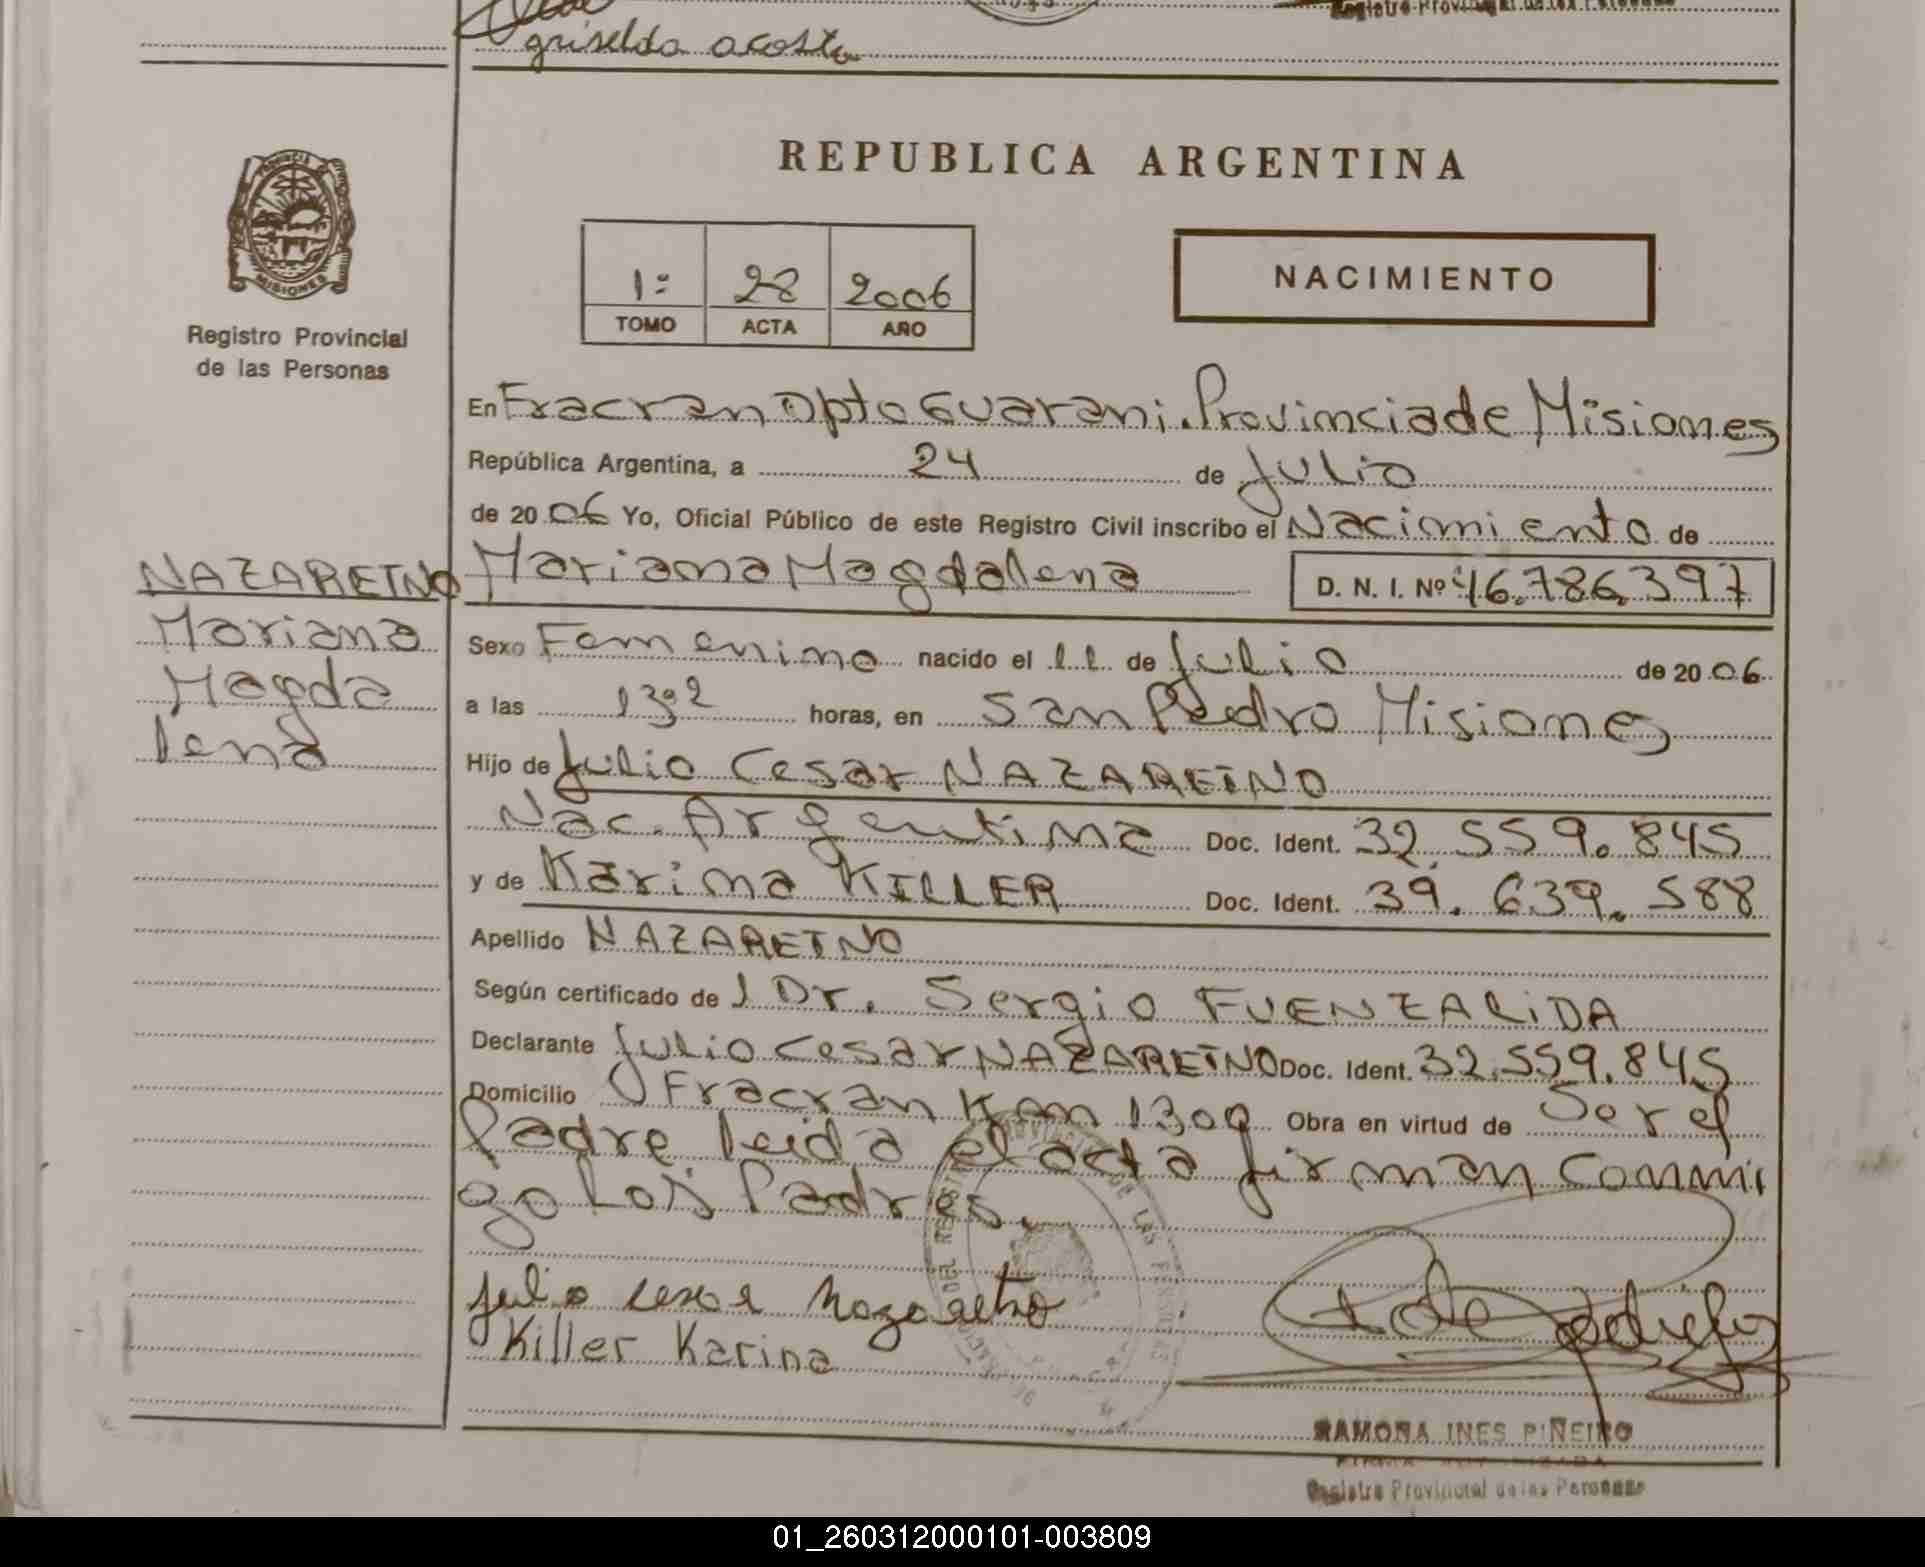 griselda acosta
Registro Provincial de las Personas
REPUBLICA ARGENTINA
PROVINCIA
MISIONES
Registro Provincial
de las Personas
1º 28 2006
TOMO ACTA AÑO
NACIMIENTO
En Fracran Dpto Guarani. Provincia de Misiones
República Argentina, a 24 de Julio
de 2006 Yo, Oficial Público de este Registro Civil inscribo el Nacimiento de
NAZARETNO
Mariana
Magda
lena
Mariana Magdalena D. N. I. Nº 46.786.397
Sexo Femenino nacido el 11 de Julio de 2006
a las horas, en San Pedro Misiones
Hijo de Julio Cesar NAZARETNO
Nac. Argentina Doc. Ident. 32.559.845
y de Karina KILLER Doc. Ident. 39.639.588
Apellido NAZARETNO
Según certificado de l Dr. Sergio FUENZALIDA
Declarante Julio Cesar NAZARETNO Doc. Ident. 32.559.845
Domicilio Fracran Km 1309 Obra en virtud de Ser el
Padre leida el acta firman conmi
go Los Padres.
julio sesar nazaretno
Killer Karina
RAMONA INES PIÑEIRO
FIRMA AUTORIZADA
Registro Provincial de las Personas
01_260312000101-003809